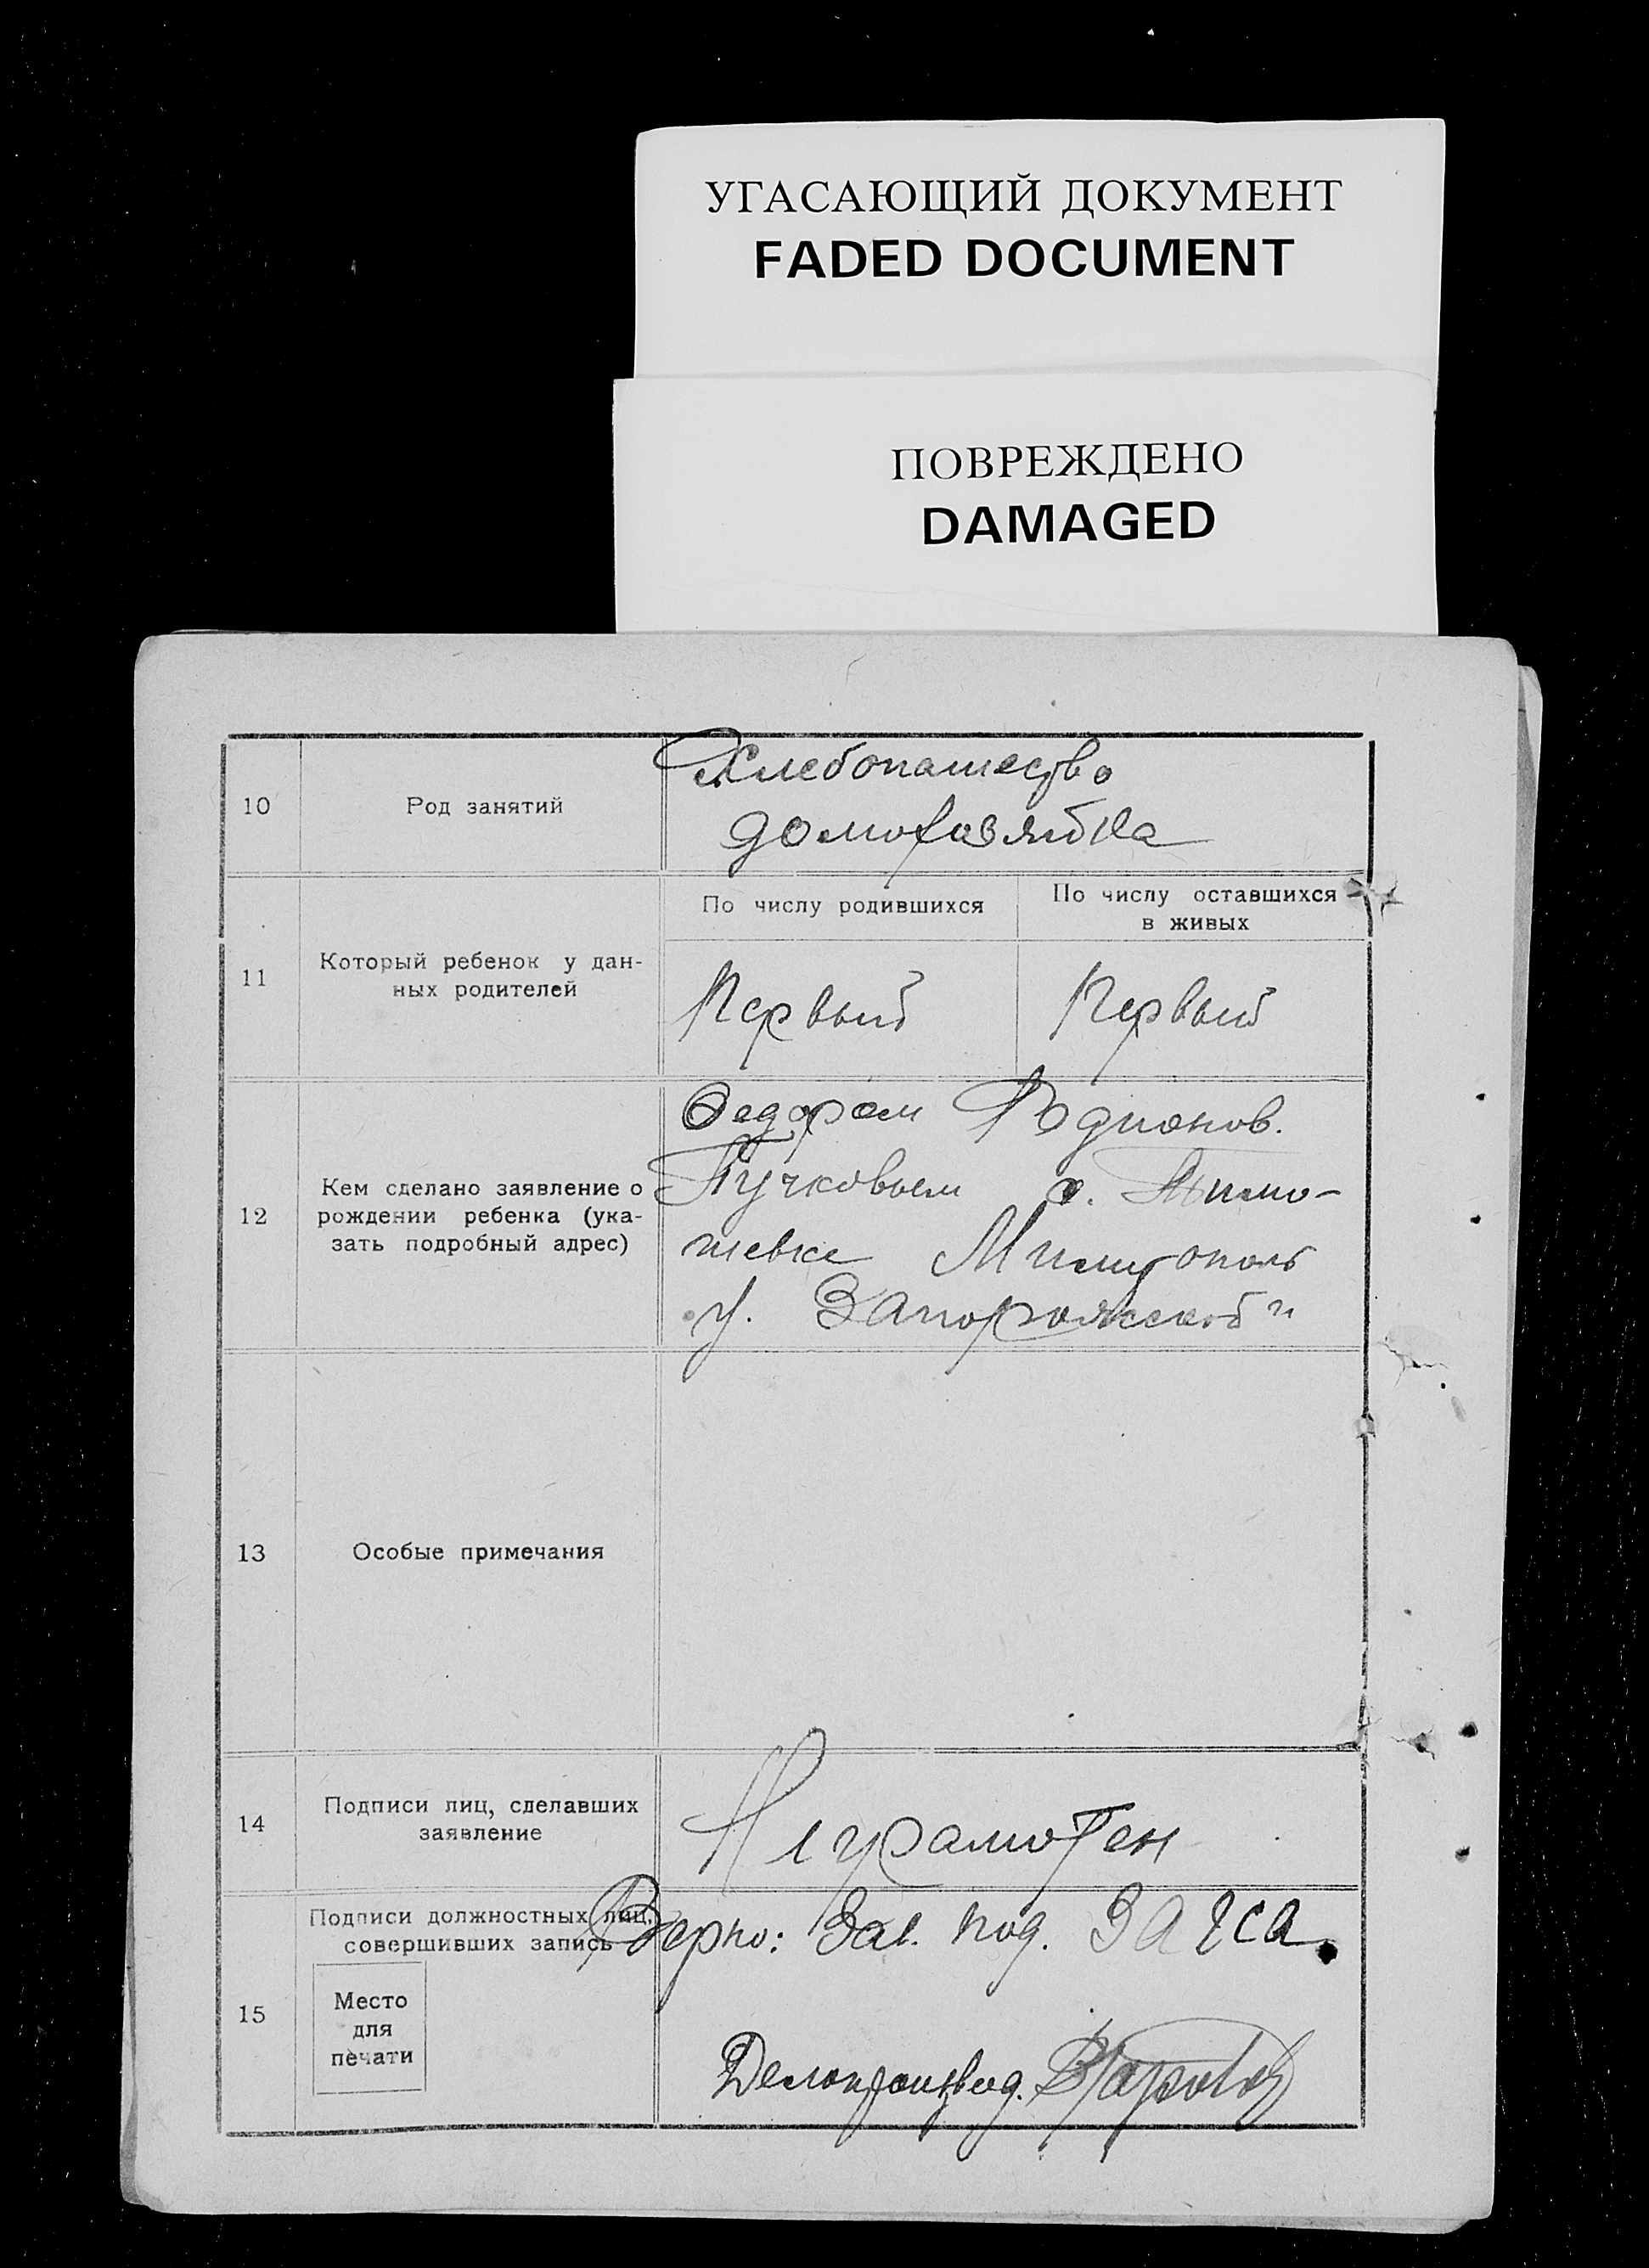 УГАСАЮЩИЙ ДОКУМЕНТ
FADED DOCUMENT
ПОВРЕЖДЕНО
DAMAGED
10
Род занятий
Хлебопашество
домохозяйка
11
Который ребенок у дан-
ных родителей
По числу родившихся
По числу оставшихся
в живых
Первый
Первый
12
Кем сделано заявление о
рождении ребенка (ука-
зать подробный адрес)
Федором Родионов.
Пучковым с. Тимо-
шевке Милитополь
у. Запорожской
13
Особые примечания
14
Подписи лиц, сделавших
заявление
Неграмотен
15
Подписи должностных лиц,
совершивших запись
Место
для
печати
Верно: Зав. под. ЗАГСА
Делопроизвод.